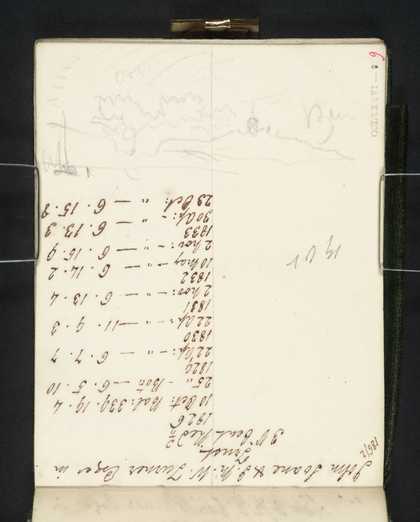 John Soane & J. M. W. Turner Esqrs in
Trust
3 P Cent Red
1826
10 Oct: Bal: 339. 19. 4
25 " - Bot — 6. 5. 10
1829
22 Ap: - " — 6. 7. 7
1830
22 Ap: - " — 11. 9. 3
1831
2 Nov: - " — 6. 13. 4
1832
10 May - " — 6. 14. 2
2 Nov: - " — 6. 15. 9
1833
30 Ap: - " — 6. 13. 3
23 Oct: " — 6. 15. 3
6